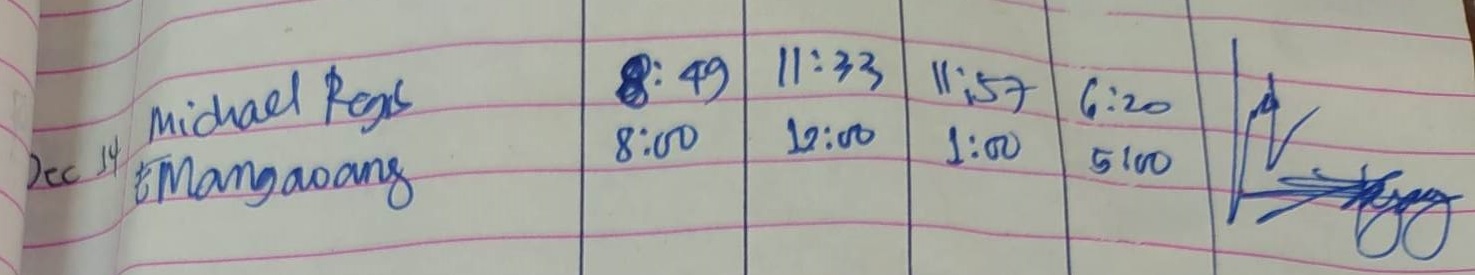 Michael Regis 8:49 11:33 11:57 6:20
Dec 14 Mangaoang 8:00 12:00 1:00 5:00